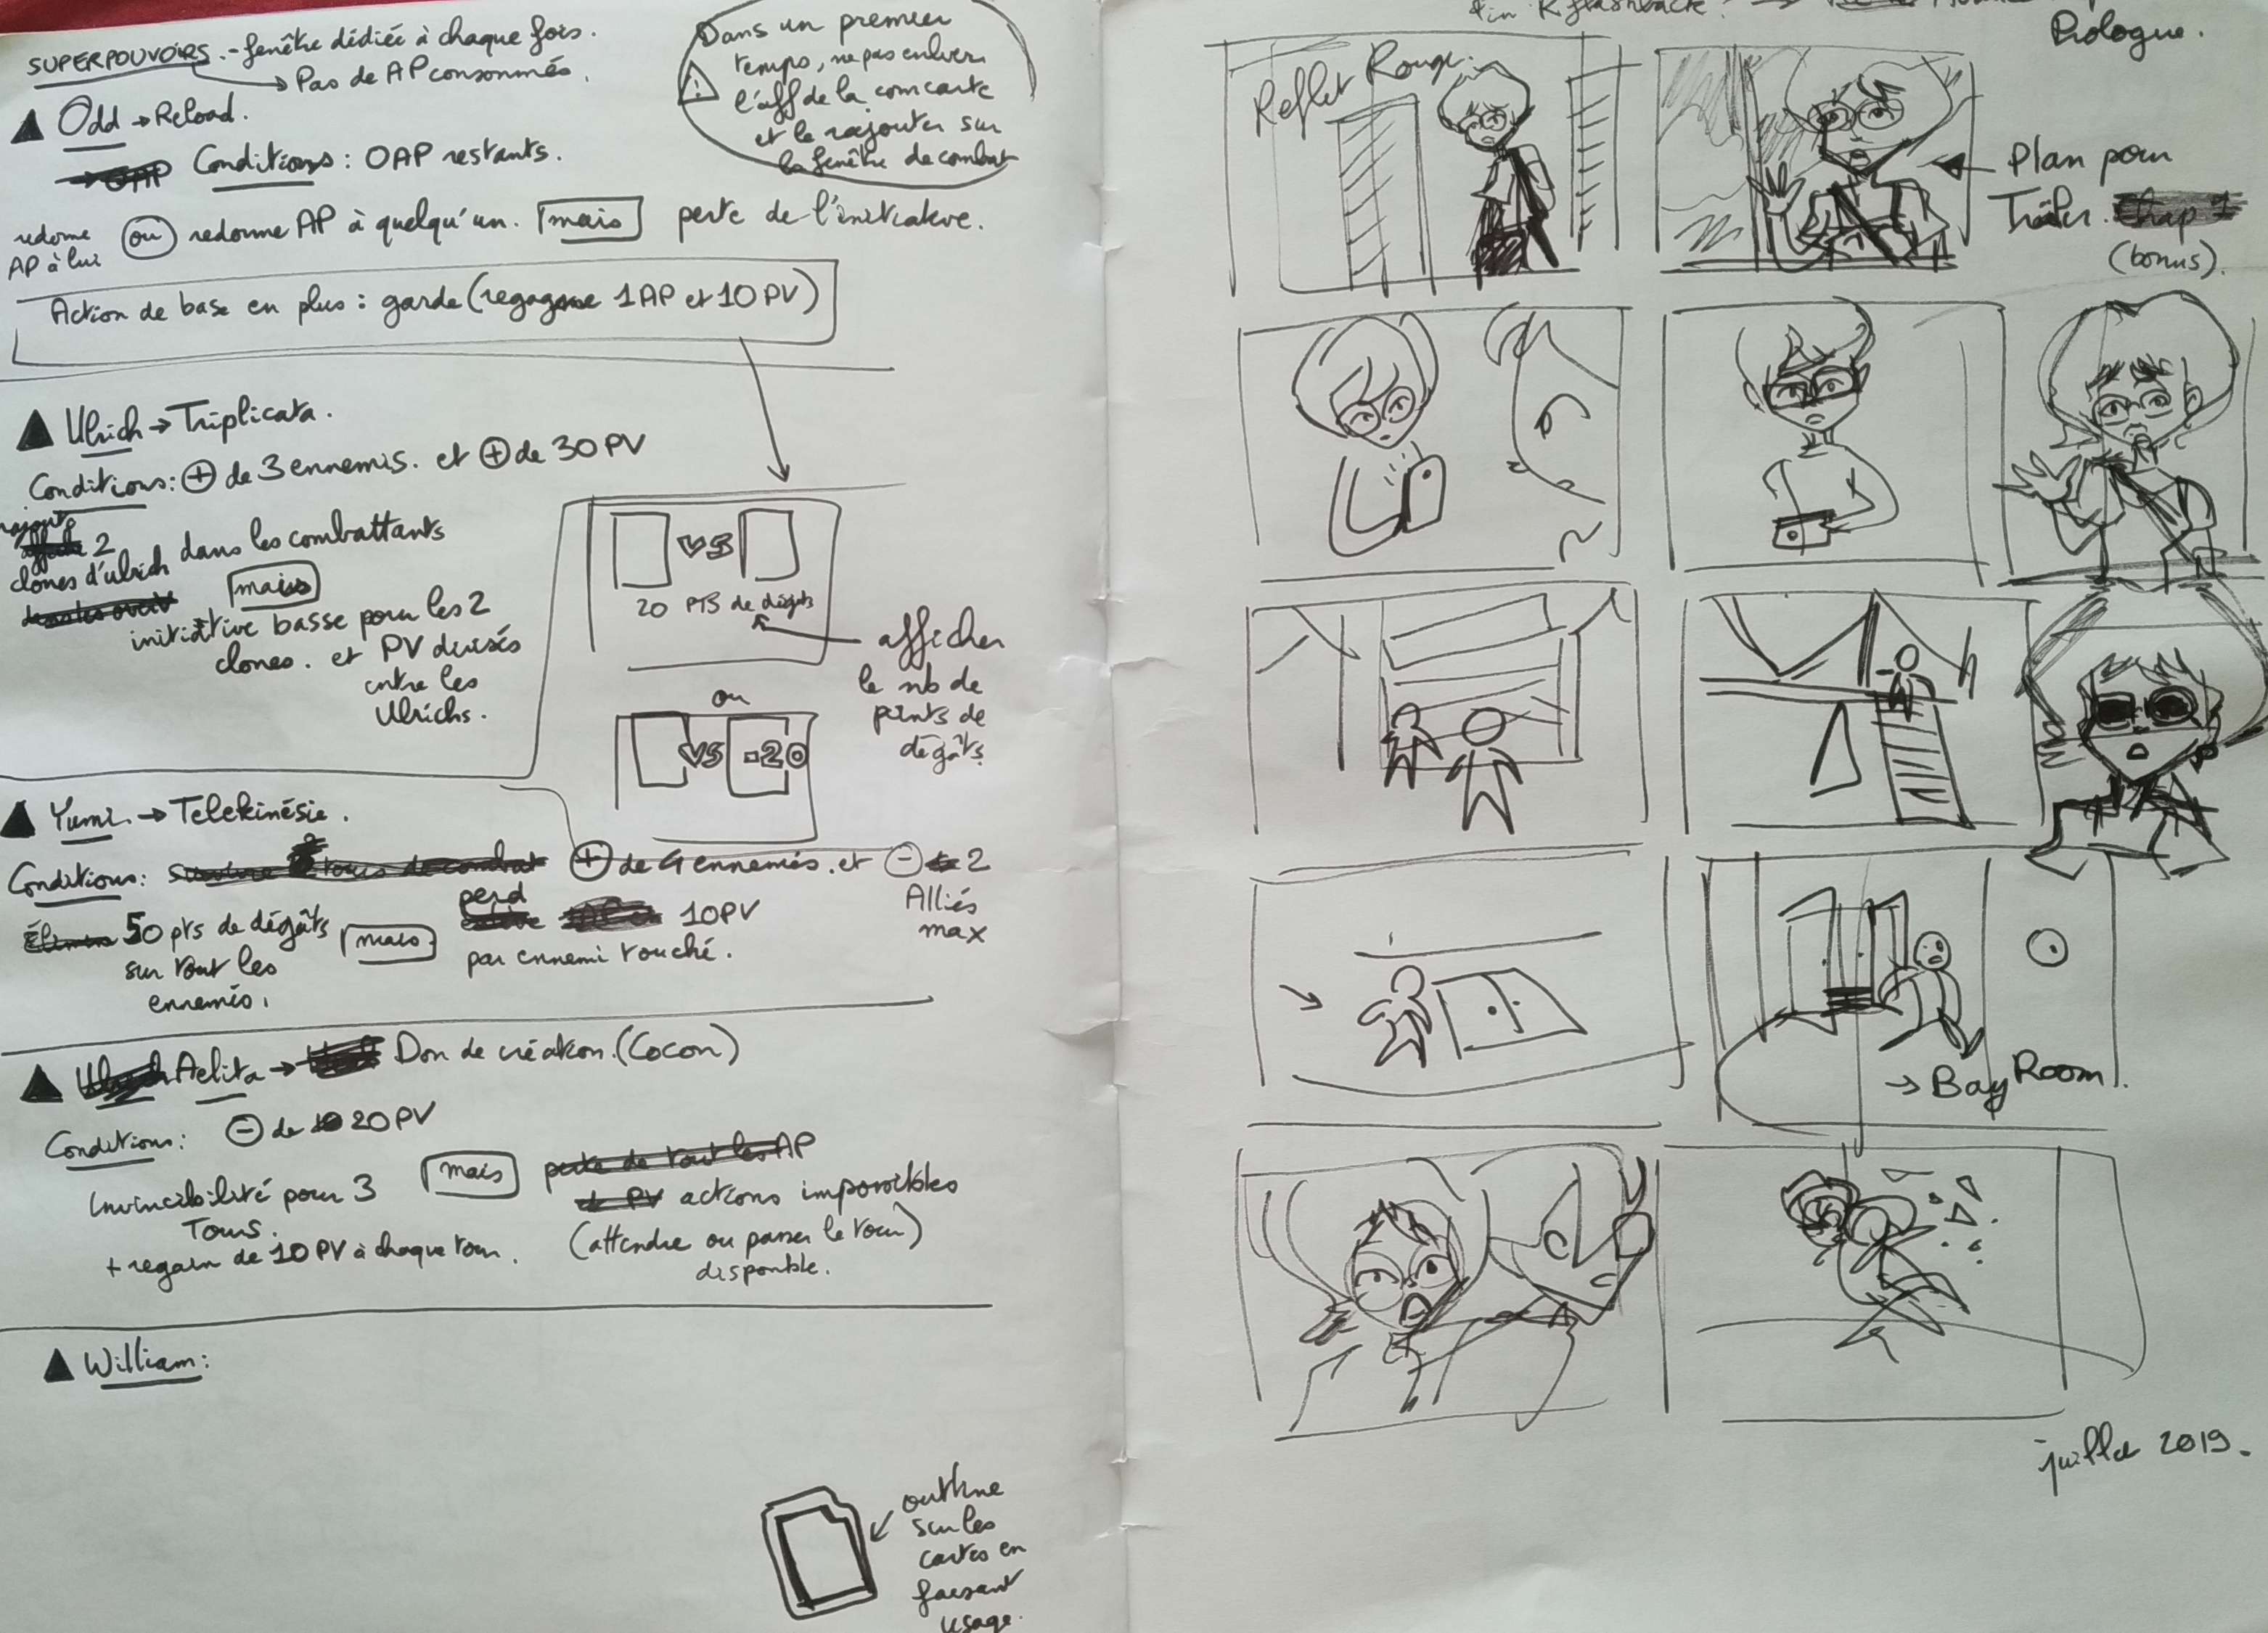 SUPERPOUVOIRS - fenêtre dédiée à chaque fois.
→ Pas de AP consommés.
Odd → Reload.
Conditions : 0AP restants.
redonne AP à lui
ou
redonne AP à quelqu'un. mais perte de l'initiative.
Action de base en plus : garde (regagne 1AP et 10PV)
Dans un premier
temps, ne pas enlever
l'aff de la comcarte
et le rajouter sur
la fenêtre de combat
Ulrich → Triplicata.
Conditions : + de 3 ennemis. et + de 30 PV
rajoute
2
clones d'ulrich dans les combattants
mais
initiative basse pour les 2
clones. et PV divisés
entre les
Ulrichs.
VS
20 PTS de dégâts
ou
VS -20
afficher
le nb de
points de
dégâts
Yumi → Telekinésie.
Conditions : + de 4 ennemis. et - 2
Alliés
max
50 pts de dégâts
sur tout les
ennemis.
mais
perd
10PV
par ennemi touché.
Aelita → Don de création. (Cocon)
Conditions : - de 20 PV
Invincibilité pour 3
Tours.
+ regain de 10 PV à chaque tour.
mais
perte de tout les AP
et PV actions impossibles
(attendre ou passer le tour)
disponible.
William :
outline
sur les
cartes en
faisant
usage.
fin R flashback.
Prologue.
Reflet Rouge.
Plan pour
Trailer. Chap 1
(bonus).
→ Bay Room.
juillet 2019.